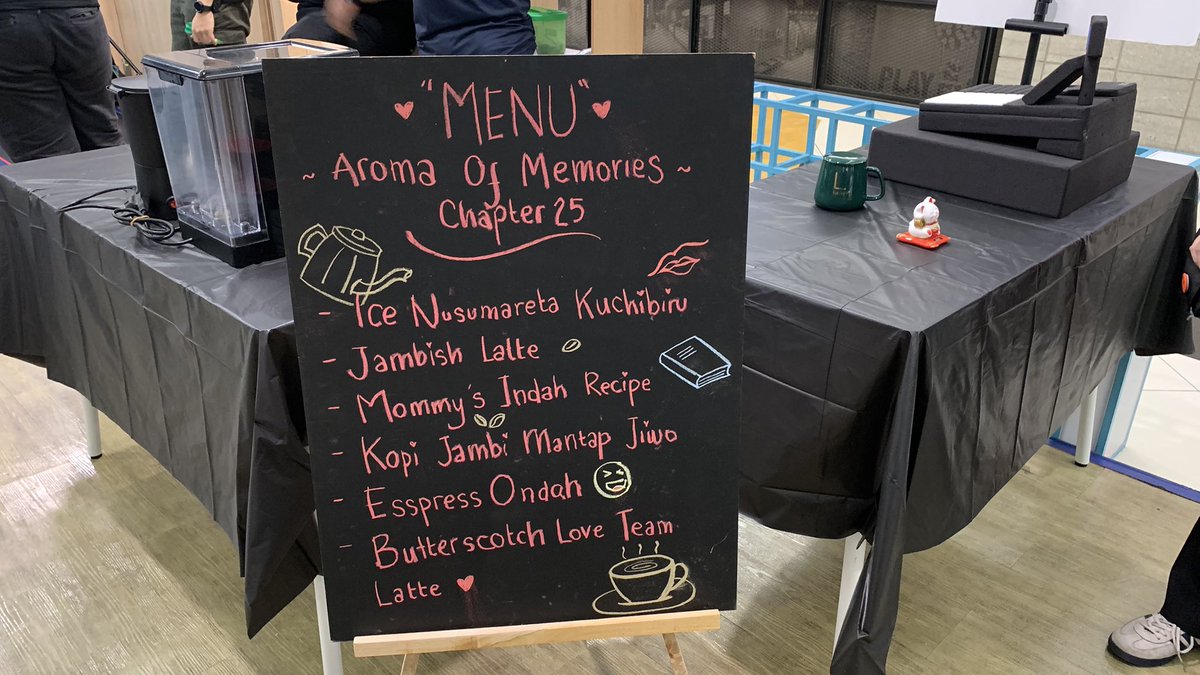 "MENU"
~ Aroma Of Memories ~
Chapter 25
- Ice Nusumareta Kuchibiru
- Jambish Latte
- Mommy's Indah Recipe
- Kopi Jambi Mantap Jiwo
- Esspress Ondah
- Butterscotch Love Team
Latte
PLAY